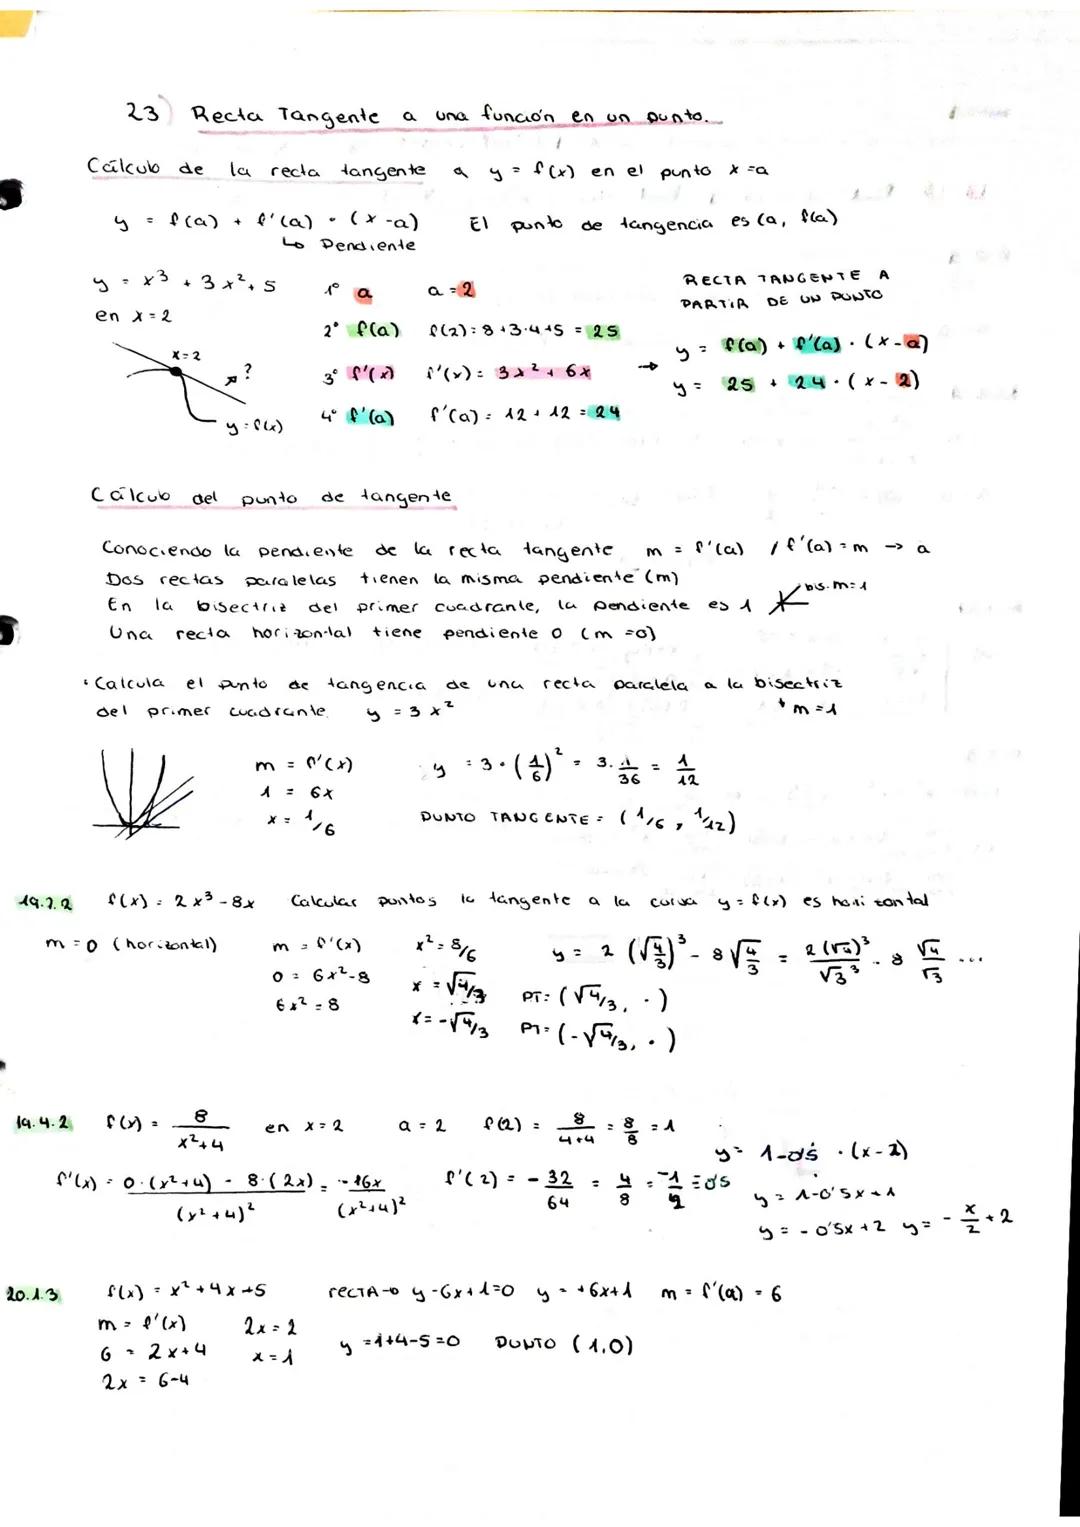 23) Recta Tangente a una función en un punto.
Cálculo de la recta tangente a y = f(x) en el punto x=a
y = f(a) + f'(a) · (x-a) El punto de tangencia es (a, f(a)
↳ Pendiente
y = x³ + 3x² + 5
en x = 2
x=2
?
y=f(x)
1º a a=2
2º f(a) f(2)= 8+3·4+5 = 25
3º f'(x) f'(x)= 3x² + 6x
4º f'(a) f'(a)= 12+12 = 24
RECTA TANGENTE A
PARTIR DE UN PUNTO
→ y = f(a) + f'(a) · (x-a)
y = 25 + 24 · (x-2)
Cálculo del punto de tangente
Conociendo la pendiente de la recta tangente m = f'(a) / f'(a)=m → a
Dos rectas paralelas tienen la misma pendiente (m)
En la bisectriz del primer cuadrante, la pendiente es 1 bis. m=1
Una recta horizontal tiene pendiente 0 (m=0)
· Calcula el punto de tangencia de una recta paralela a la bisectriz
del primer cuadrante. y = 3x² → m=1
m = f'(x)
1 = 6x
x = 1/6
y = 3·(1/6)² = 3·1/36 = 1/12
PUNTO TANGENTE = (1/6, 1/12)
19.2.2 f(x) = 2x³-8x Calcular puntos la tangente a la curva y=f(x) es horizontal
m=0 (horizontal)
m = f'(x)
0 = 6x²-8
6x² = 8
x² = 8/6
x = √4/3
x = -√4/3
y = 2(√4/3)³ - 8√4/3 = 2(√4)³/√3³ - 8 √4/√3 ...
PT: (√4/3, ·)
PT= (-√4/3, ·)
19.4.2 f(x) = 8/x²+4 en x=2 a=2 f(2) = 8/4+4 = 8/8 = 1
f'(x) = 0·(x²+4) - 8·(2x)/(x²+4)² = -16x/(x²+4)² f'(2) = -32/64 = 4/8 = -1/2 = 0'5
y = 1-0'5 · (x-2)
y = 1-0'5x+1
y = -0'5x+2 y = -x/2+2
20.1.3 f(x) = x²+4x-5 RECTA→ y-6x+1=0 y = +6x+1 m = f'(a) = 6
m = f'(x)
6 = 2x+4
2x = 6-4
2x = 2
x = 1
y = 1+4-5=0 PUNTO (1,0)